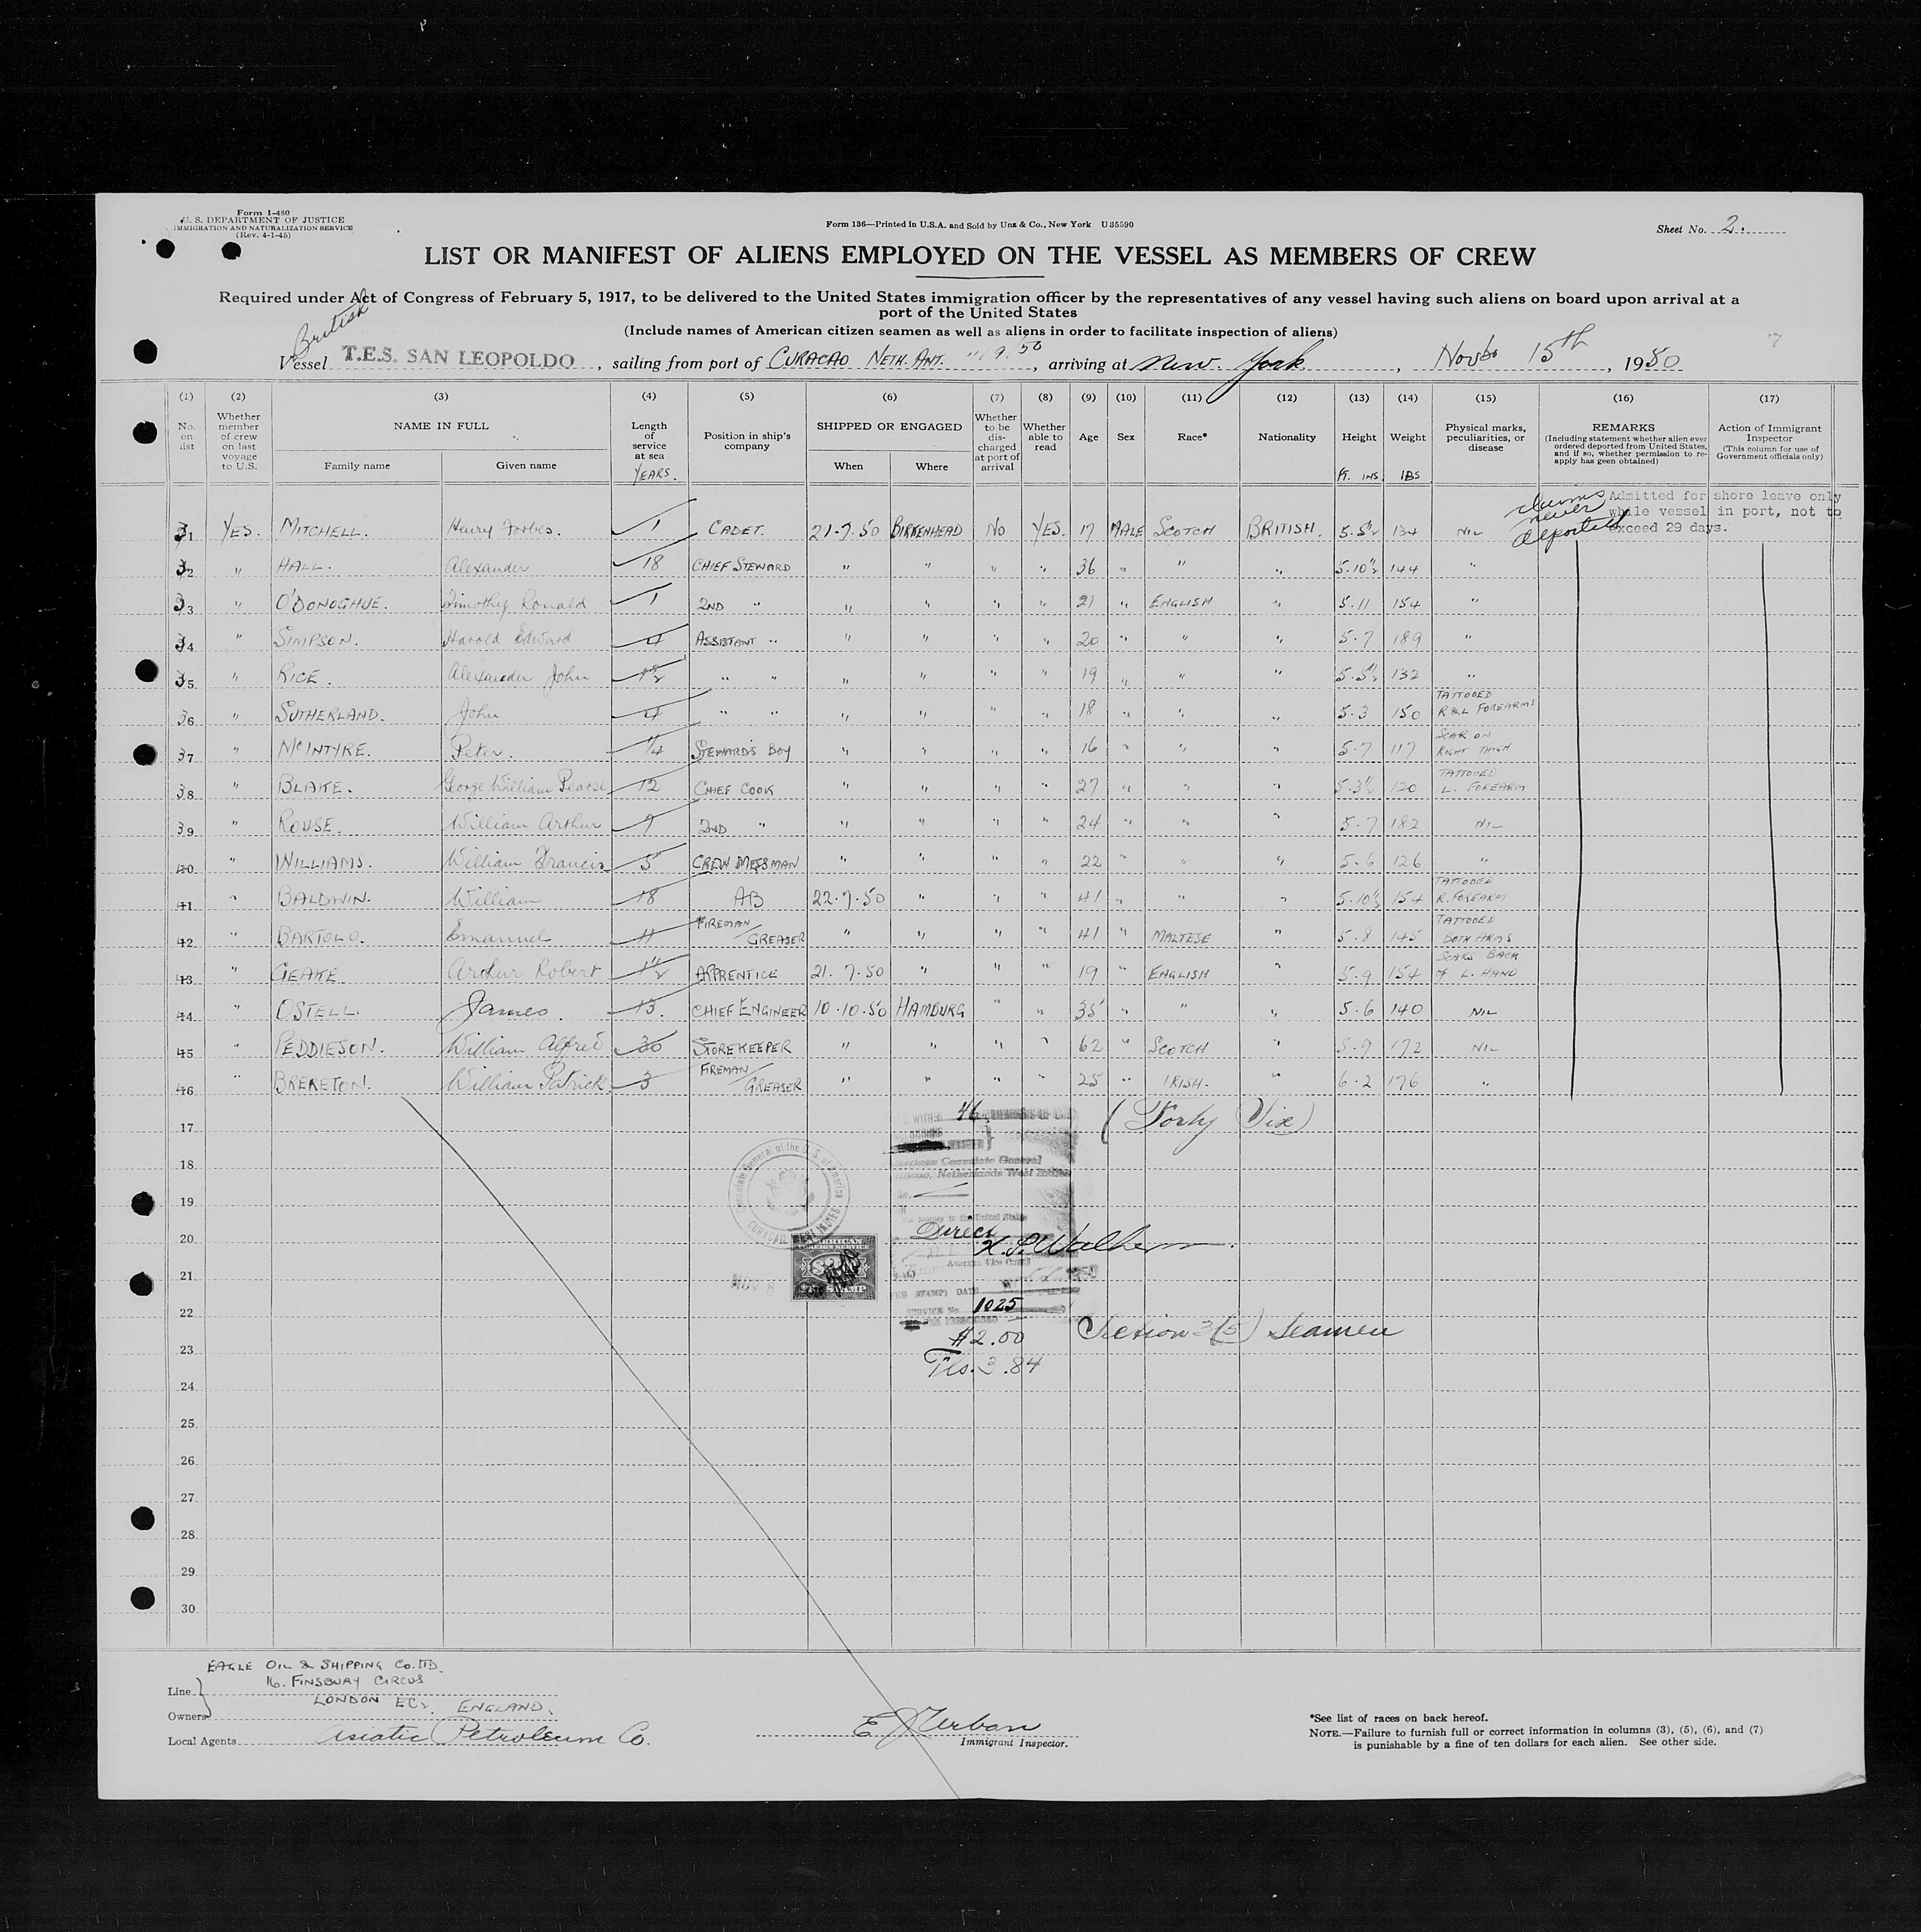 Form I-480
U. S. DEPARTMENT OF JUSTICE
IMMIGRATION AND NATURALIZATION SERVICE
(Rev. 4-1-45)
Form 136—Printed in U.S.A. and Sold by Unz & Co., New York U 35590
Sheet No. 2.
LIST OR MANIFEST OF ALIENS EMPLOYED ON THE VESSEL AS MEMBERS OF CREW
Required under Act of Congress of February 5, 1917, to be delivered to the United States immigration officer by the representatives of any vessel having such aliens on board upon arrival at a
port of the United States
(Include names of American citizen seamen as well as aliens in order to facilitate inspection of aliens)
British
Vessel T.E.S. SAN LEOPOLDO , sailing from port of CURACAO NETH. ANT. 11/9/50 , arriving at New York , Nov 15th , 1950
(1) (2) (3) (4) (5) (6) (7) (8) (9) (10) (11) (12) (13) (14) (15) (16) (17)
No. on list
Whether member of crew on last voyage to U.S.
NAME IN FULL
Family name Given name
Length of service at sea YEARS.
Position in ship's company
SHIPPED OR ENGAGED
When Where
Whether to be discharged at port of arrival
Whether able to read
Age
Sex
Race*
Nationality
Height Ft. INS.
Weight LBS
Physical marks, peculiarities, or disease
REMARKS
(Including statement whether alien ever ordered deported from United States, and if so, whether permission to re-apply has geen obtained)
Action of Immigrant Inspector
(This column for use of Government officials only)
claims never deported
Admitted for shore leave only
while vessel in port, not to
exceed 29 days.
31 YES. MITCHELL. Henry Forbes. 1 CADET. 21.7.50 BIRKENHEAD NO YES. 17 MALE SCOTCH BRITISH. 5.5½ 134 NIL
32 " HALL. Alexander 18 CHIEF STEWARD " " " " 36 " " " 5.10½ 144 "
33 " O'DONOGHUE. Timothy Ronald 1 2ND " " " " " 21 " ENGLISH " 5.11 154 "
34 " SIMPSON. Harold Edward 4 ASSISTANT " " " " " 20 " " " 5.7 189 "
35 " RICE. Alexander John 1½ " " " " " " 19 " " " 5.5½ 132 "
36 " SUTHERLAND. John 4 " " " " " " 18 " " " 5.3 150 TATTOOED R&L FOREARMS
37 " McINTYRE. Peter. ¼ STEWARD'S BOY " " " " 16 " " " 5.7 117 SCAR ON RIGHT THIGH
38 " BLAKE. George William Pearse 12 CHIEF COOK " " " " 27 " " " 5.3½ 120 TATTOOED L. FOREARM
39 " ROUSE. William Arthur 9 2ND " " " " " 24 " " " 5.7 182 NIL
40 " WILLIAMS. William Francis 5 CREW MESSMAN " " " " 22 " " " 5.6 126 "
41 " BALDWIN. William 18 AB 22.7.50 " " " 41 " " " 5.10½ 154 TATTOOED R. FOREARM
42 " BARTOLO. Emanuel 11 FIREMAN/GREASER " " " " 41 " MALTESE " 5.8 145 TATTOOED BOTH ARMS
43 " GEAKE Arthur Robert 1½ APPRENTICE 21.7.50 " " " 19 " ENGLISH " 5.9 154 SCARS BACK OF L. HAND
44 " OSTELL. James. 13. CHIEF ENGINEER 10.10.50 HAMBURG " " 35 " " " 5.6 140 NIL
45 " PEDDIESON. William Alfred 30 STOREKEEPER " " " " 62 " SCOTCH " 5.9 172 NIL
46 " BRERETON. William Patrick. 3 FIREMAN/GREASER " " " " 25 " IRISH. " 6.2 176 "
17
46
(Forty Six)
18
American Consulate General
Netherlands West Indies
19
Consulate General of the U. S. of America
CURACAO, WEST INDIES
20
Direct
American Vice Consul
AMERICAN
FOREIGN SERVICE
21
NOV 8
22
SERVICE No. 1025
$2.00
Section 3(5) Seamen
23
Fls. 3.84
24
25
26
27
28
29
30
EAGLE OIL & SHIPPING CO. LTD.
16. FINSBURY CIRCUS
Line
LONDON EC2. ENGLAND.
Owners
Local Agents Asiatic Petroleum Co.
Immigrant Inspector.
*See list of races on back hereof.
NOTE.—Failure to furnish full or correct information in columns (3), (5), (6), and (7)
is punishable by a fine of ten dollars for each alien. See other side.